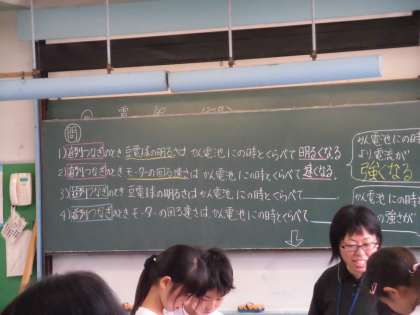 問
1) 直列つなぎのとき 豆電球の明るさは かん電池1この時とくらべて 明るくなる
2) 直列つなぎのとき モーターの回る速さは かん電池1この時とくらべて 速くなる。
3) 並列つなぎのとき 豆電球の明るさは かん電池1この時とくらべて
4) 並列つなぎのとき モーターの回る速さは かん電池1この時とくらべて
かん電池1この時
より電流が
強くなる
かん電池1この時
の強さが